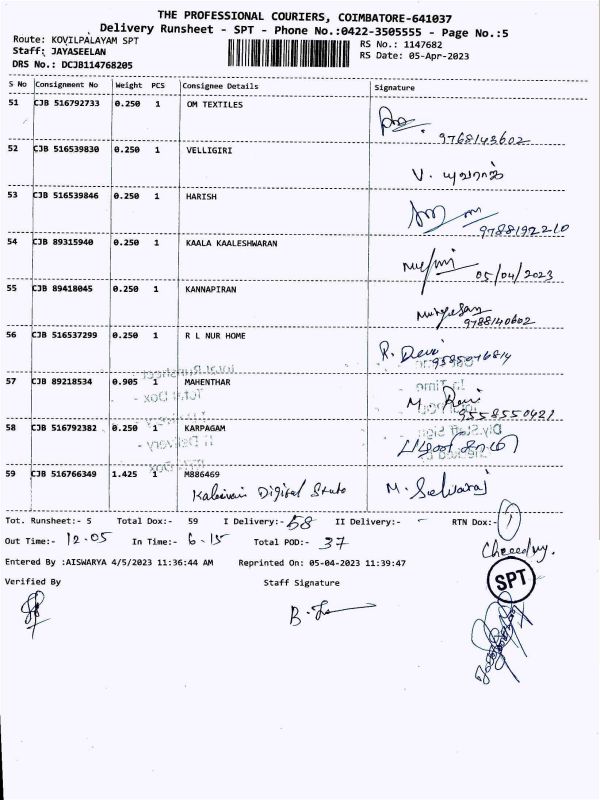 THE PROFESSIONAL COURIERS, COIMBATORE-641037
Delivery Runsheet - SPT - Phone No.:0422-3505555 - Page No.:5
Route: KOVILPALAYAM SPT
RS No.: 1147682
Staff: JAYASEELAN
RS Date: 05-Apr-2023
DRS No.: DCJB114768205
S No Consignment No Weight PCS Consignee Details Signature
51 CJB 516792733 0.250 1 OM TEXTILES
9768143602
52 CJB 516539830 0.250 1 VELLIGIRI
V. யுவராஜ்
53 CJB 516539846 0.250 1 HARISH
9788192210
54 CJB 89315940 0.250 1 KAALA KAALESHWARAN
05/04/2023
55 CJB 89418045 0.250 1 KANNAPIRAN
Murugesan
9788140602
56 CJB 516537299 0.250 1 R L NUR HOME
R. Devi
9585046814
57 CJB 89218534 0.905 1 MAHENTHAR
M. Ravi
9558550421
58 CJB 516792382 0.250 1 KARPAGAM
59 CJB 516766349 1.425 1 M886469
Kalaivani Digital Stuto M. Selvaraj
Tot. Runsheet:- 5 Total Dox:- 59 I Delivery:- 58 II Delivery:- - RTN Dox:- 1
Out Time:- 12.05 In Time:- 6.15 Total POD:- 37
Entered By :AISWARYA 4/5/2023 11:36:44 AM Reprinted On: 05-04-2023 11:39:47
SPT
Verified By Staff Signature